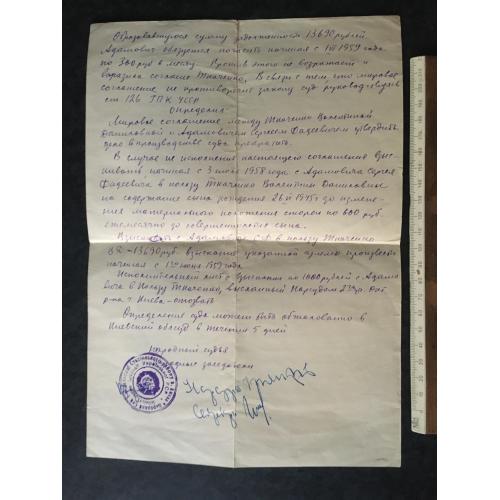 Образовавшуюся сумму задолженности 13690 рублей,
Адамович обязуется погасить начиная с 1959 года
по 300 руб в месяц. Против этого не возражает и
выразила согласие Ткаченко. В связи с тем, что мировое
соглашение не противоречит закону суд руководствуясь
ст. 126 ГПК УССР
Определил:
Мировое соглашение между Ткаченко Валентиной
Даниловной и Адамовичем Сергеем Фадеевичем утвердить,
дело производством суда прекратить.
В случае не исполнения настоящего соглашения взыс-
кивать начиная с 3 июля 1958 года с Адамовича Сергея
Фадеевича в пользу Ткаченко Валентины Даниловны
на содержание сына рождения 26 1945г до измене-
ния материального положения сторон по 600 руб.
ежемесячно до совершеннолетия сына.
Взыскать с Адамовича С.Ф. в пользу Ткаченко
В.Д. - 13690 руб. взыскание указанной суммы произвести
начиная с 1го июня 1959 года.
Исполнительный лист о взыскании по 1000 рублей с Адамо-
вича в пользу Ткаченко, высланный Нарсудом
р-на г. Киева - отозвать.
Определение суда может быть обжаловано в
Киевский облсуд в течении 5 дней
Народный судья
Народные заседатели